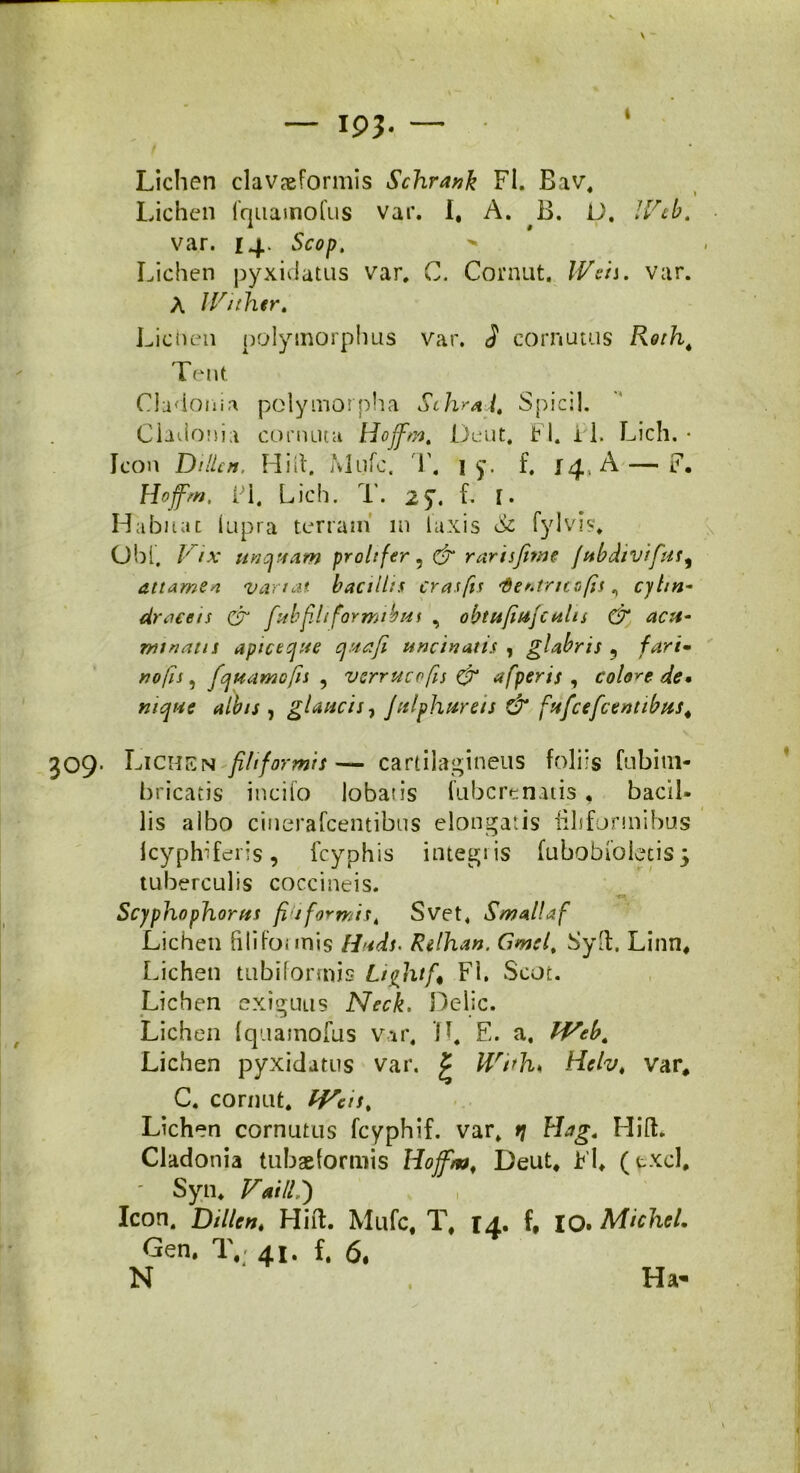 — 193. —
Lichen clavæformis Schrank Fl. Bav.
Lichen ſquamoſus var. I. A. B. D. Web.
var. 14. Scop.
Lichen pyxidatus var. C. Cornut. Weis. var.
λ Wither.
Lichen polymorphus var. δ cornutus Roth.
Tent
Cladonia polymorpha Schrad. Spicil.
Cladonia cornuta Hoffm. Deut. Fl. Pl. Lich.
Icon Dillen. Hiſt. Muſc. T. 15. f. 14. A — F.
Hoffm. Pl. Lich. T. 25. f. 1.
Habitat ſupra terram in ſaxis & ſylvis.
Obſ. Vix unquam prolifer, & rarisſime ſubdiviſus,
attamen variat bacillis crasſis ventricoſis, cylin-
draceis & ſubfiliformibus, obtuſiuſculis & acu-
minatis apiceque quaſi uncinatis, glabris, fari-
noſis, ſquamoſis, verrucoſis & aſperis, colore de-
nique albis, glaucis, ſulphureis & fuſceſcentibus.
309. LICHEN filiformis — cartilagineus foliis ſubim-
bricatis inciſo lobatis ſubcrenatis, bacil-
lis albo cineraſcentibus elongatis filiformibus
ſcyphiferis, ſcyphis integris ſubobſoletis;
tuberculis coccineis.
Scyphophorus filiformis. Svet. Smallaf
Lichen filiformis Huds. Relhan. Gmel. Syſt. Linn.
Lichen tubiformis Lightf. Fl. Scot.
Lichen exiguus Neck. Delic.
Lichen ſquamoſus var. II. E. a. Web.
Lichen pyxidatus var. ξ With. Helv. var.
C. cornut. Weis.
Lichen cornutus ſcyphif. var. η Hag. Hiſt.
Cladonia tubæformis Hoffm. Deut. Fl. (excl.
Syn. Vaill.)
Icon. Dillen. Hiſt. Muſc. T. 14. f. 10. Michel.
Gen. T. 41. f. 6.
N Ha-